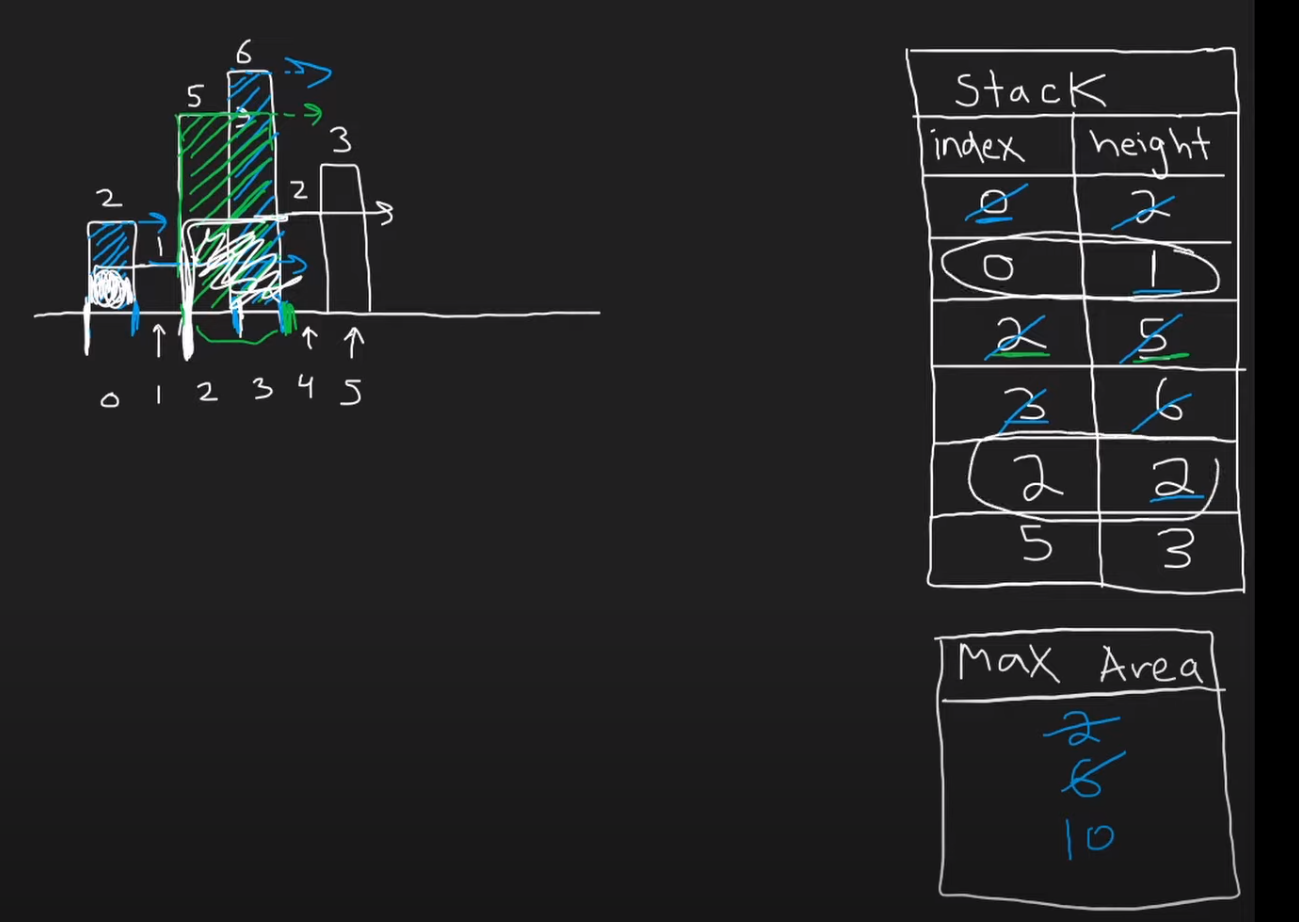 6
5
3
2
2
1
0 1 2 3 4 5
Stack
index height
0 2
0 1
2 5
3 6
2 2
5 3
Max Area
2
6
10